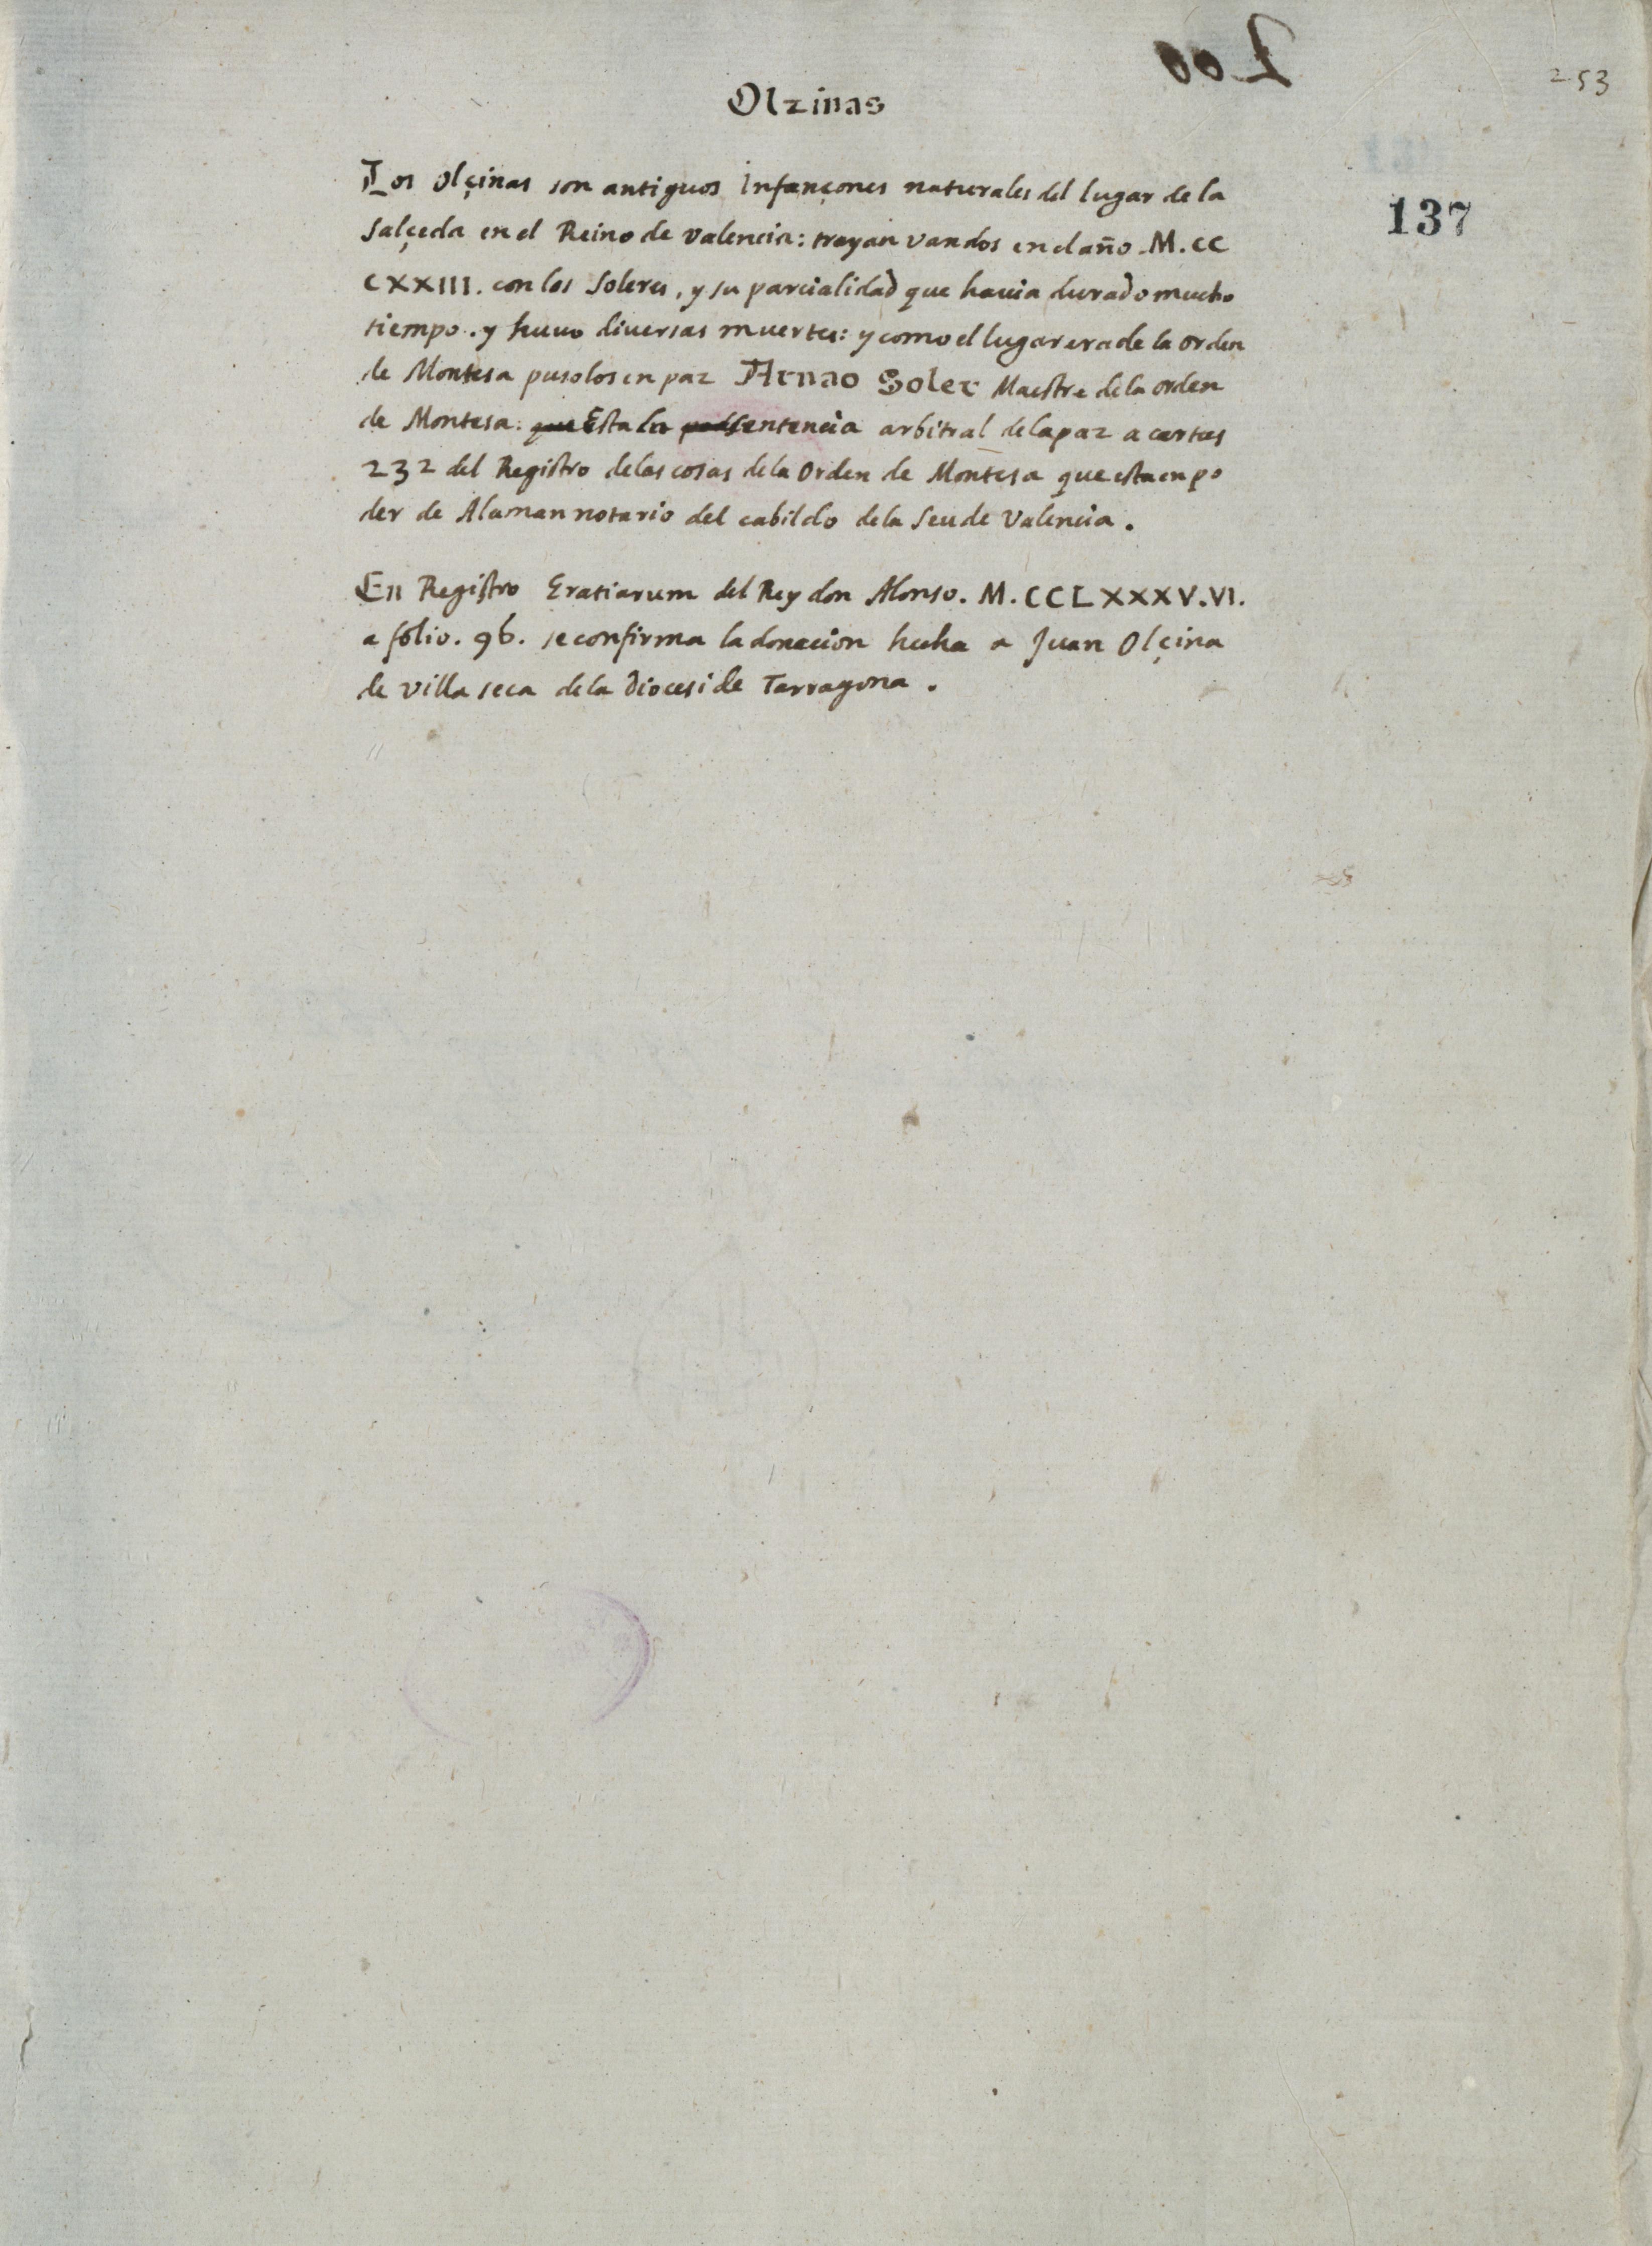 200
253
Olzinas
137
Los olçinas son antiguos Infançones naturales del lugar de la
salçeda en el Reino de valencia: trayan vandos en el año .M.CC
CXXIII. con los Soleres, y su parcialidad que hauia durado mucho
tiempo. y huuo diuersas muertes: y como el lugar era de la orden
de Montesa pusolos en paz Arnao Soler Maestre de la orden
de Montesa: que Esta la sentencia arbitral de la paz a cartas
232 del Registro de las cosas de la Orden de Montesa que esta en po
der de Alaman notario del cabildo de la Seu de Valencia.
En Registro Gratiarum del Rey don Alonso. M.CCLXXXV.VI.
a folio. 96. se confirma la donacion hecha a Juan Olçina
de villa seca de la diocesi de Tarragona.